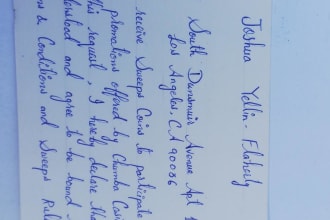 Joshua Yellin - Flaherty
South Dunsmuir Avenue Apt
Los Angeles, CA 90036
receive Sweeps Coins to participate
promotions offered by Chumba Casi
this request, I hereby declare tha
derstood and agree to be bound
ms & Conditions and Sweeps Rule